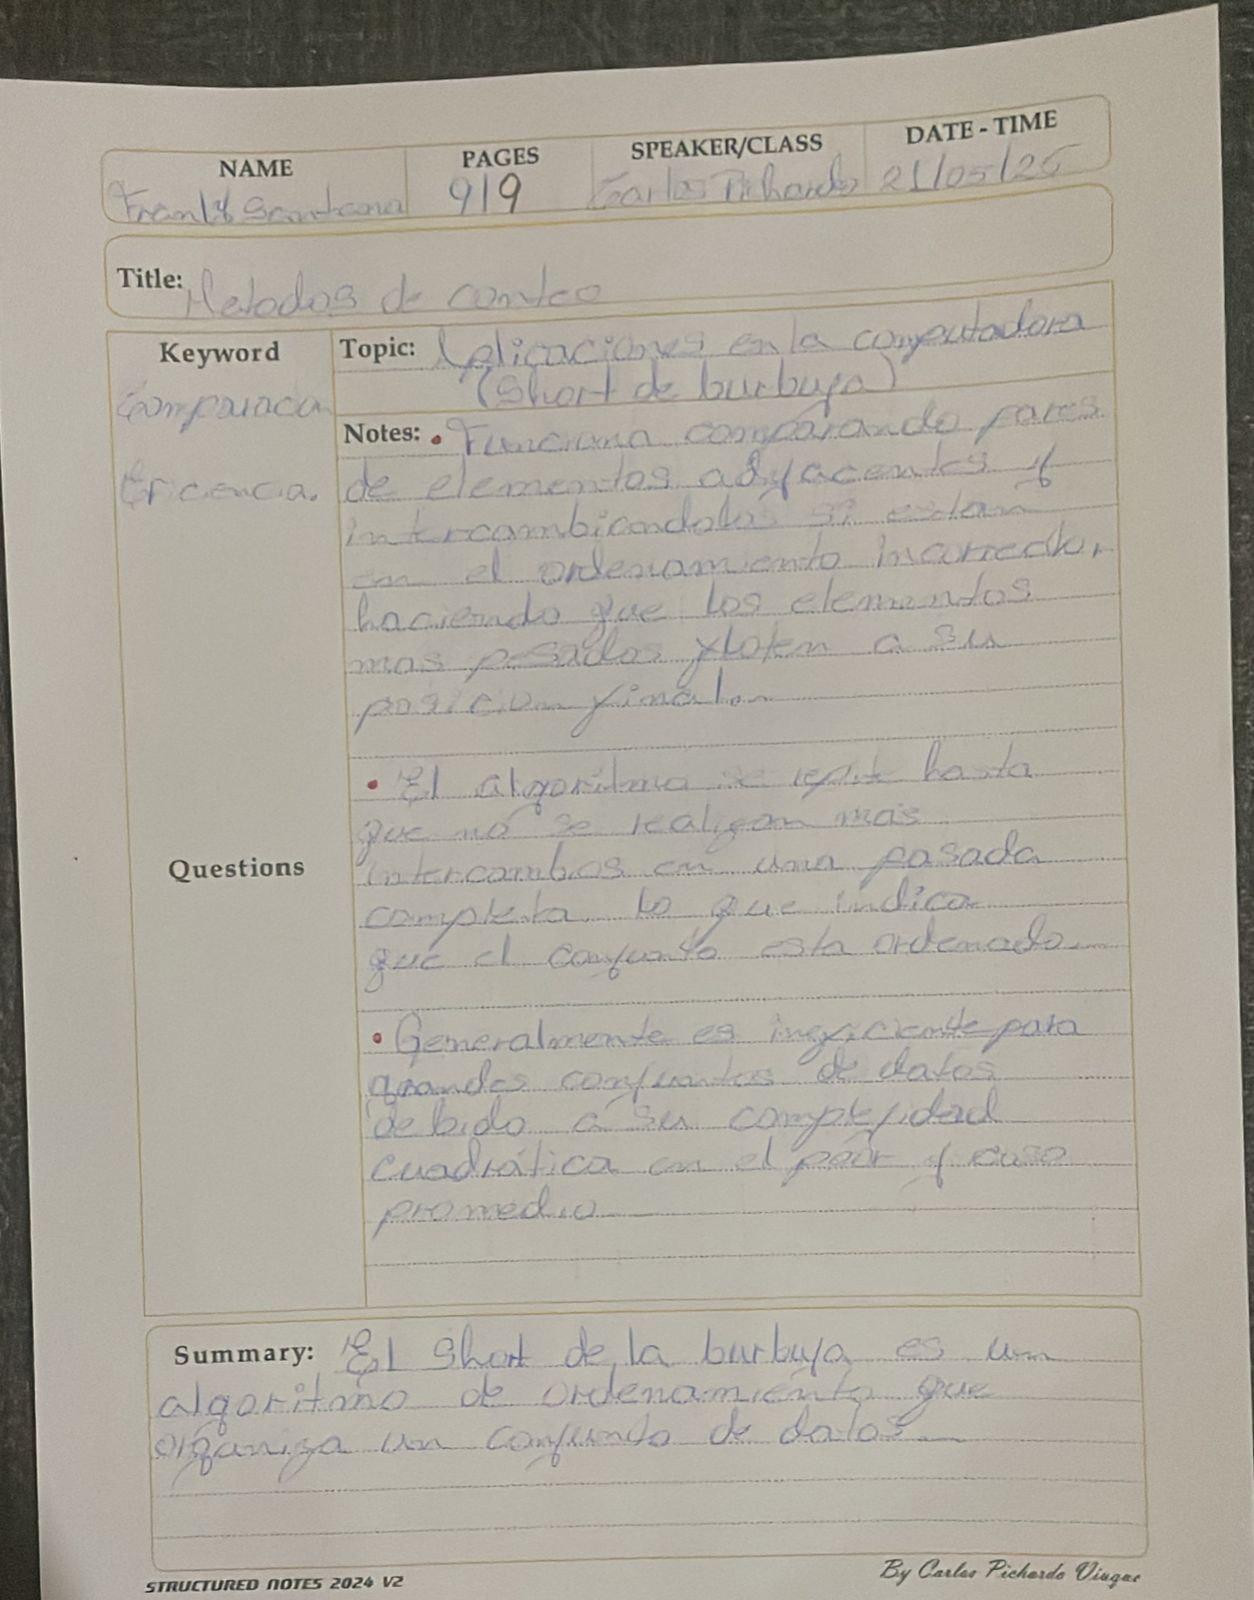 NAME PAGES SPEAKER/CLASS DATE - TIME
Santana 9/9 Carlos Pichardo 21/05/25
Title: Metodos de conteo
Keyword
Comparacion
Eficiencia.
Topic: Aplicaciones en la computadora
(Short de burbuja)
Notes: • Funciona comparando pares
de elementos adyacentes y
intercambiandolos si estan
en el ordenamiento incorrecto,
haciendo que los elementos
mas pesados floten a su
posicion final.
• El algoritmo se repite hasta
que no se realizan mas
intercambios en una pasada
completa lo que indica
que el conjunto esta ordenado.
Questions
• Generalmente es ineficiente para
grandes conjuntos de datos
debido a su complejidad
cuadrática en el peor y caso
promedio
Summary: El Short de la burbuja es un
algoritmo de ordenamiento que
organiza un conjunto de datos
STRUCTURED NOTES 2024 V2
By Carlos Pichardo Viuque